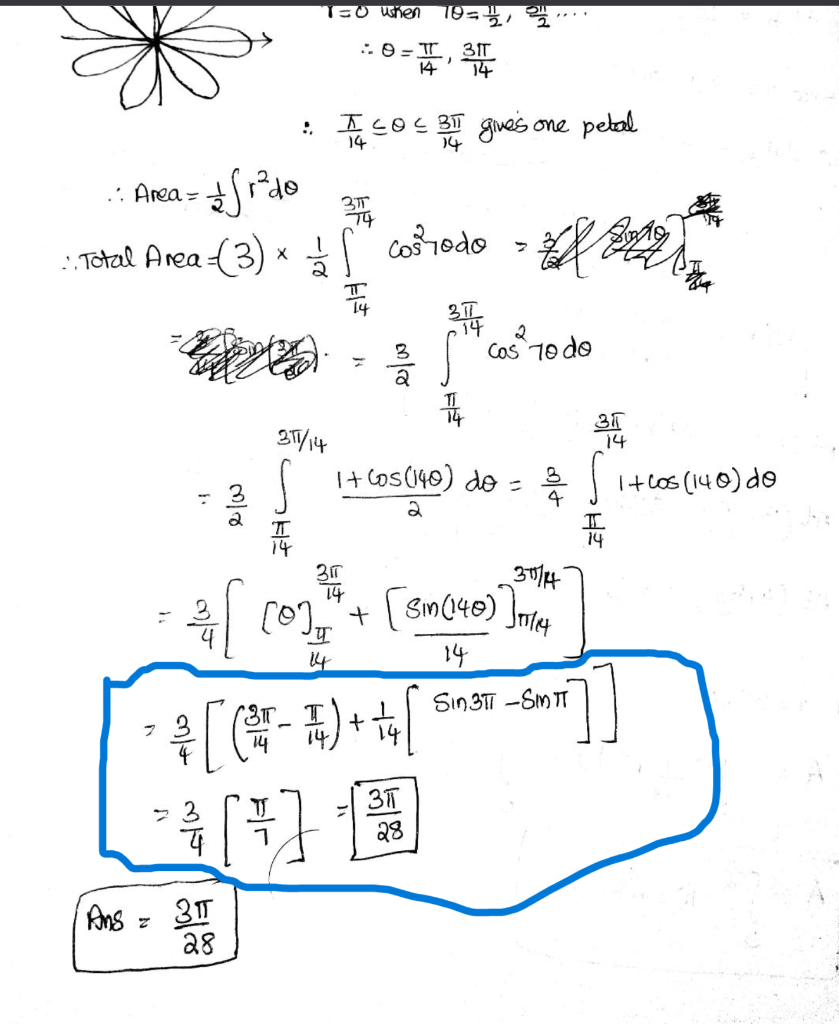 r=0 when 7θ = π/2, 3π/2 ....
∴ θ = π/14, 3π/14
∴ π/14 ≤ θ ≤ 3π/14 gives one petal
∴ Area = 1/2 ∫ r² dθ
∴ Total Area = (3) × 1/2 ∫_{π/14}^{3π/14} cos² 7θ dθ =
= = 3/2 ∫_{π/14}^{3π/14} cos² 7θ dθ
= 3/2 ∫_{π/14}^{3π/14} (1 + cos(14θ))/2 dθ = 3/4 ∫_{π/14}^{3π/14} 1 + cos(14θ) dθ
= 3/4 [ [θ]_{π/14}^{3π/14} + [ sin(14θ)/14 ]_{π/14}^{3π/14} ]
= 3/4 [ (3π/14 - π/14) + 1/14 [ sin3π - sinπ ] ]
= 3/4 [ π/7 ] = 3π/28
Ans = 3π/28